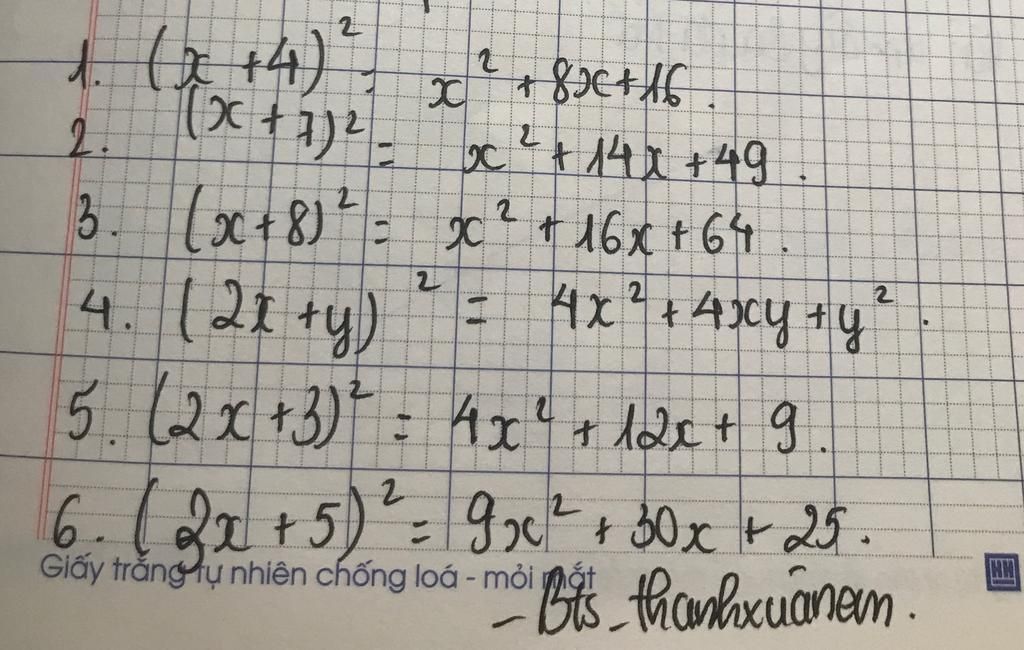 1. (x + 4)² = x² + 8x + 16.
2. (x + 7)² = x² + 14x + 49.
3. (x + 8)² = x² + 16x + 64.
4. (2x + y)² = 4x² + 4xy + y².
5. (2x + 3)² = 4x² + 12x + 9.
6. (3x + 5)² = 9x² + 30x + 25.
Giấy trắng tự nhiên chống loá - mỏi mắt
HH
- Bts_thanhxuânem.